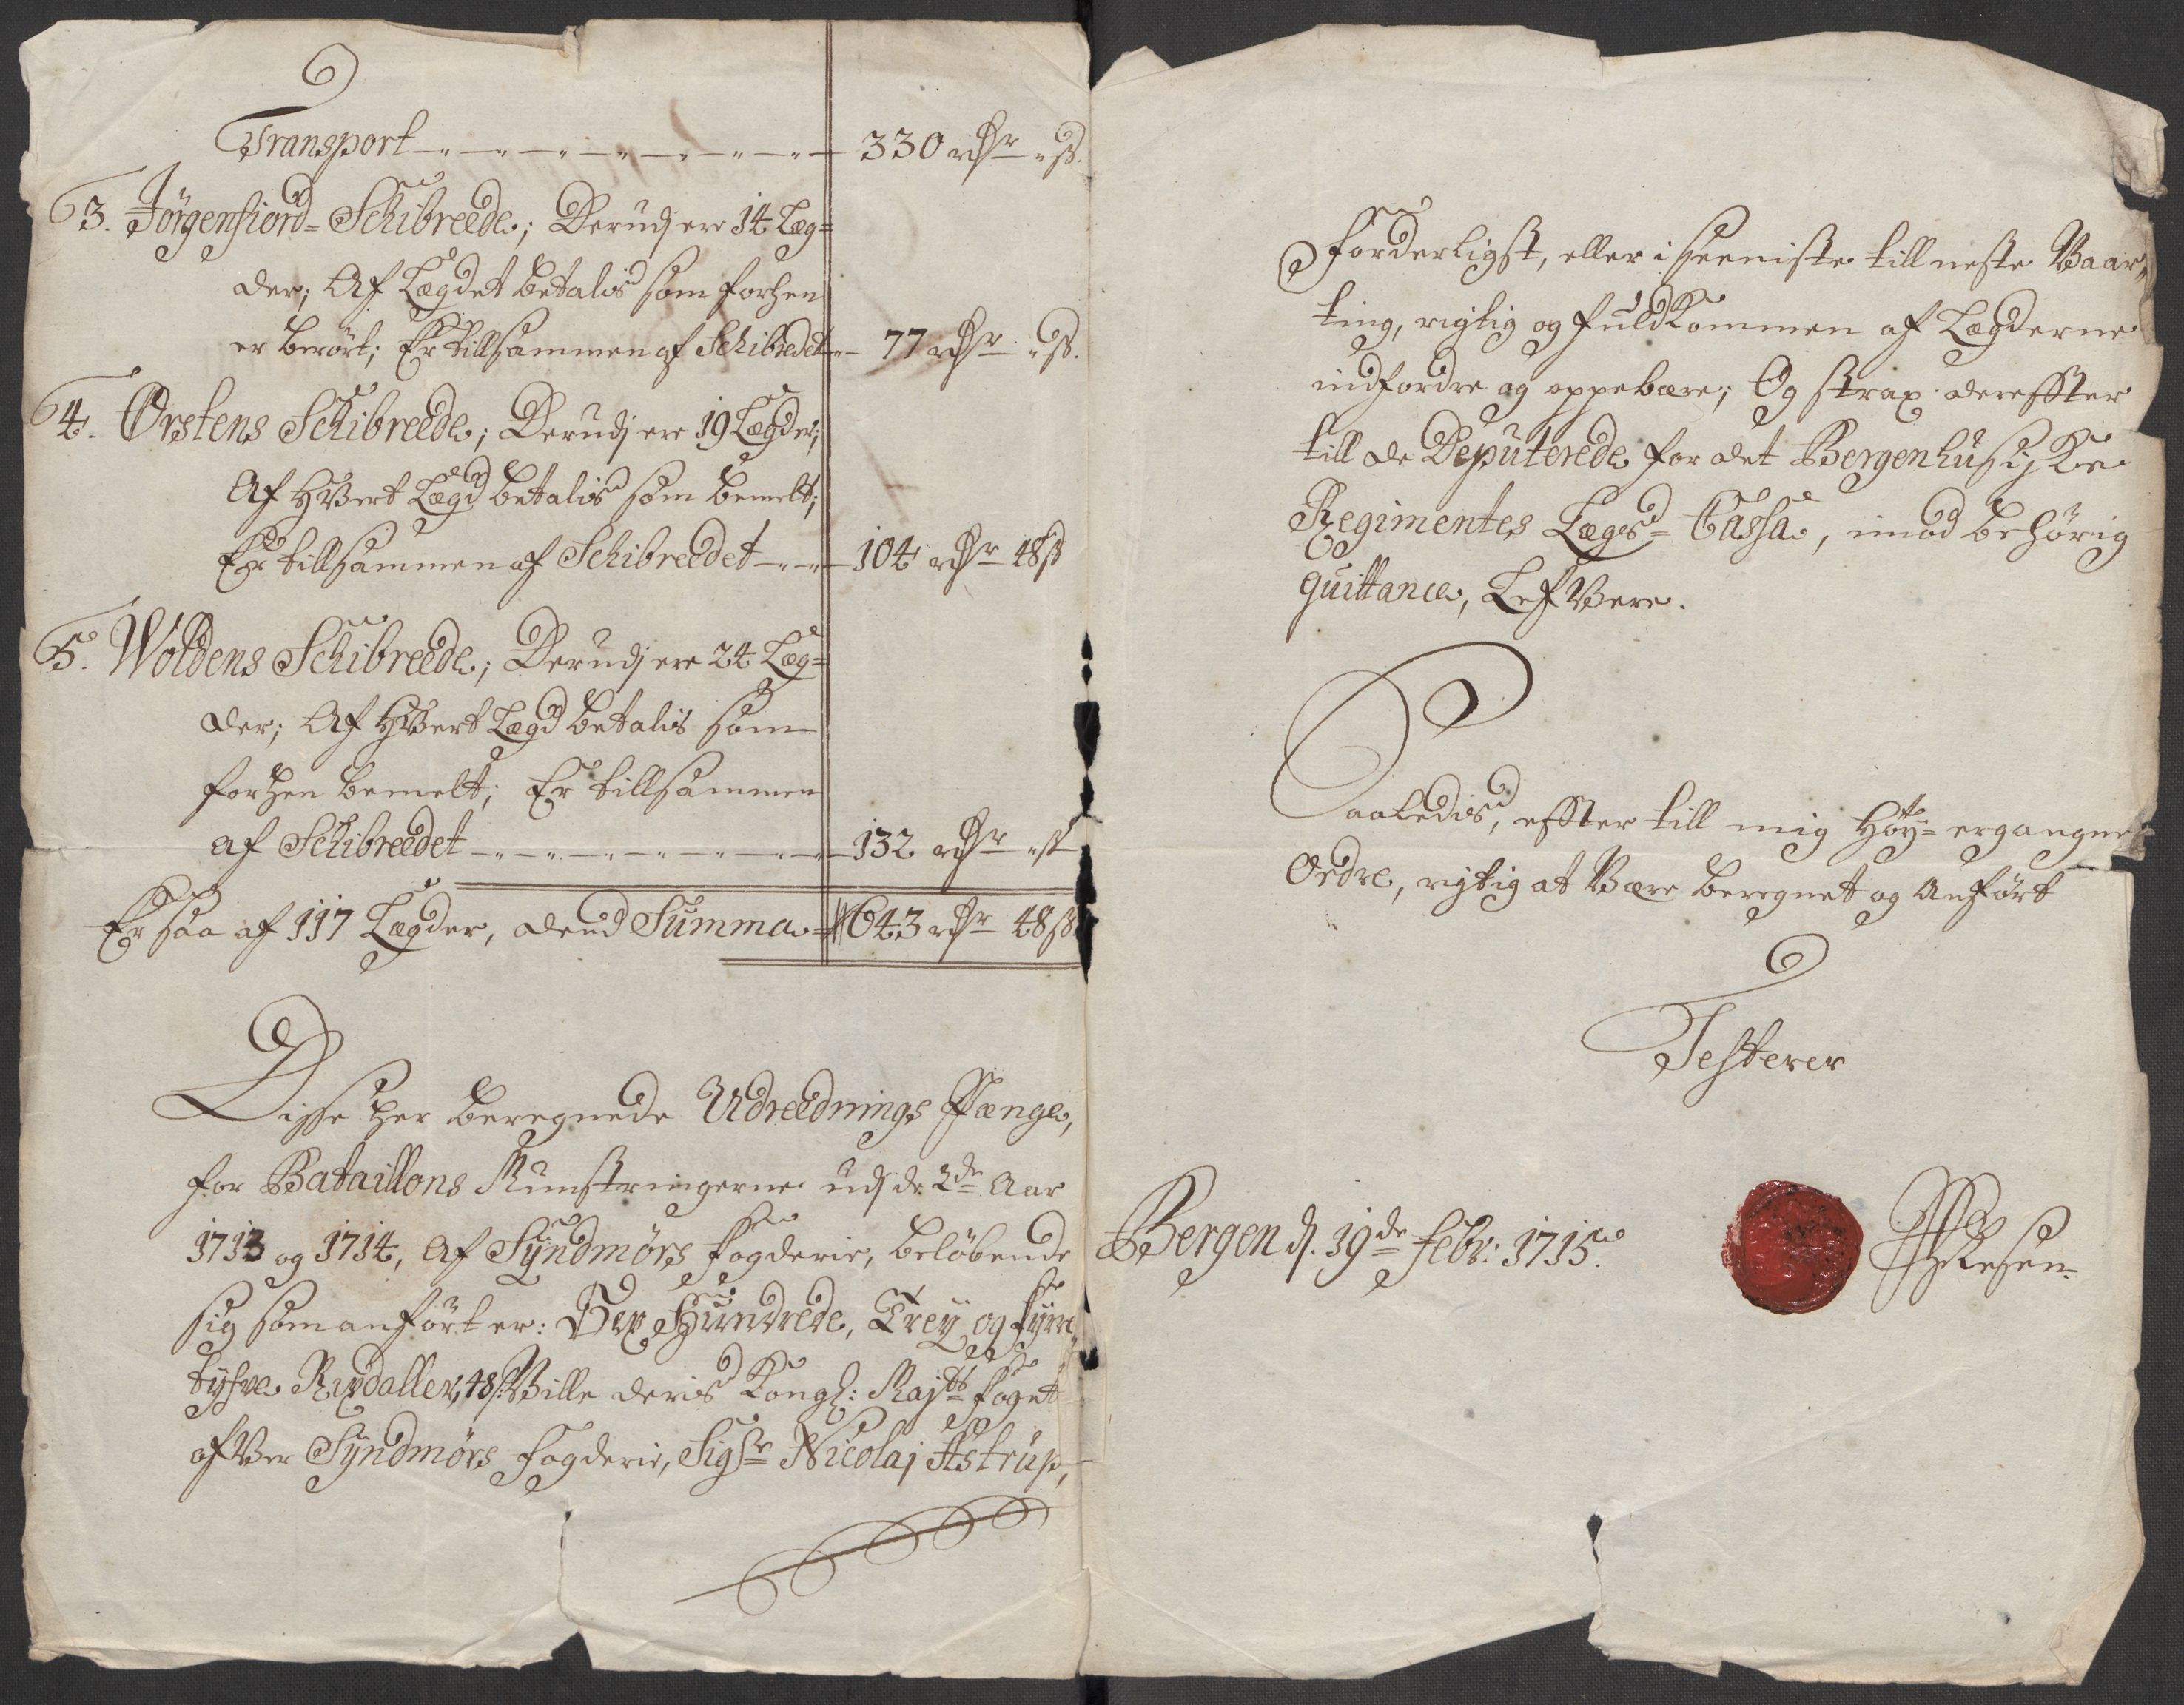 Transport 330 rdr " ß.
3. Jörgenfiord= Schibreede; Derudj ere 14 Læg=
der; Af Lægdet betalis som forhen
er berört; Er tillsammen af Schibredet 77 rdr " ß.
4. Örstens Schibreede; Derudj ere 19 Lægder;
Af hVert Lægd betalis som bemelt;
Er tillsammen af Schibreedet 104 rdr 48 ß
5. Woldens Schibreede; Derudj ere 24 Læg=
der; Af hVert Lægd betalis som
forhen bemelt; Er tillsammen
af Schibreedet 132 rdr " ß
Er saa af 117 Lægder, dend Summa 643 rdr 48 ß
Disse her beregnede Udreednings Penge,
for Bataillons Munstringerne udj de 2de Aar
1713 og 1714, Af Syndmörs fogderie, belöbende
sig som anfört er: Sex Hundrede, Trey og fyrre
tyfve Rixdaller, 48 ß: Ville deris Kongl: Majts foget
ofVer Syndmörs fogderie, Sigr Nicolaj Astrup,
Forderligst, eller i seeniste till neste Vaar„
ting, rigtig og fuldkommen af Lægderne
indfordre og oppebære; Og strax dereffter
till de Deputerede for det Bergenhusiske
Regimentes Lægds= Cassa, imod behörig
quittance, LefVere.
Saaledis, effter till mig höy= ergangne
Ordre, rigtig at Være beregnet og Anfört
Testerer
Bergen d. 19de febr: 1715.